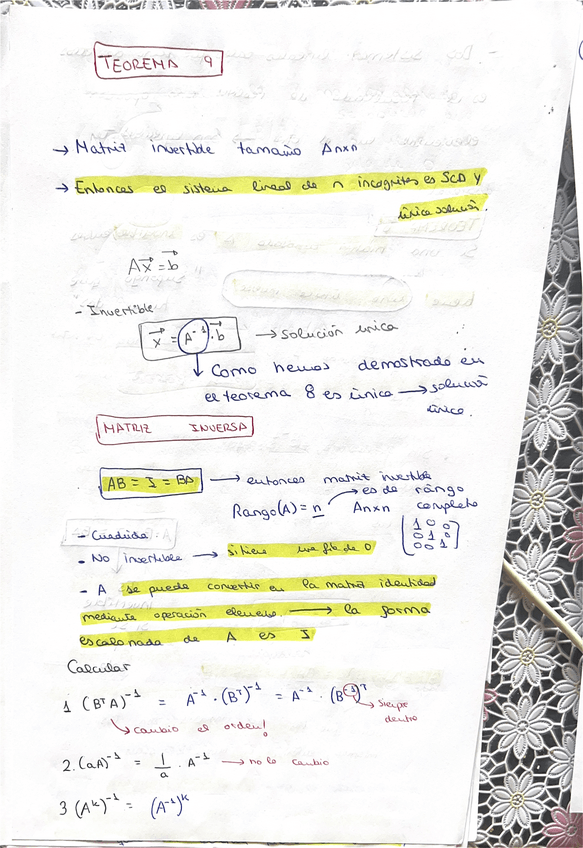 TEOREMA 9
→ Matriz invertible tamaño Anxn
→ Entonces el sistema lineal de n incognitas es SCD y
única solución.
Ax⃗ = b⃗
- Invertible
x⃗ = A⁻¹ · b⃗ → solución única
↓ Como hemos demostrado en
el teorema 8 es única → solución
única.
MATRIZ INVERSA
AB = I = BA → entonces matriz invertible
→ es de rango
Rango(A) = n Anxn completo
- Cuadrada
1 0 0
0 1 0
0 0 1
• No invertible → si tiene una fila de 0
- A se puede convertir en la matriz identidad
mediante operación element. → la forma
escalonada de A es I
Calcular
1 (BᵀA)⁻¹ = A⁻¹ · (Bᵀ)⁻¹ = A⁻¹ · (B⁻¹)ᵀ → Siempre
dentro
↳ cambio el orden!
2. (aA)⁻¹ = 1/a · A⁻¹ → no lo cambio
3 (Aᵏ)⁻¹ = (A⁻¹)ᵏ